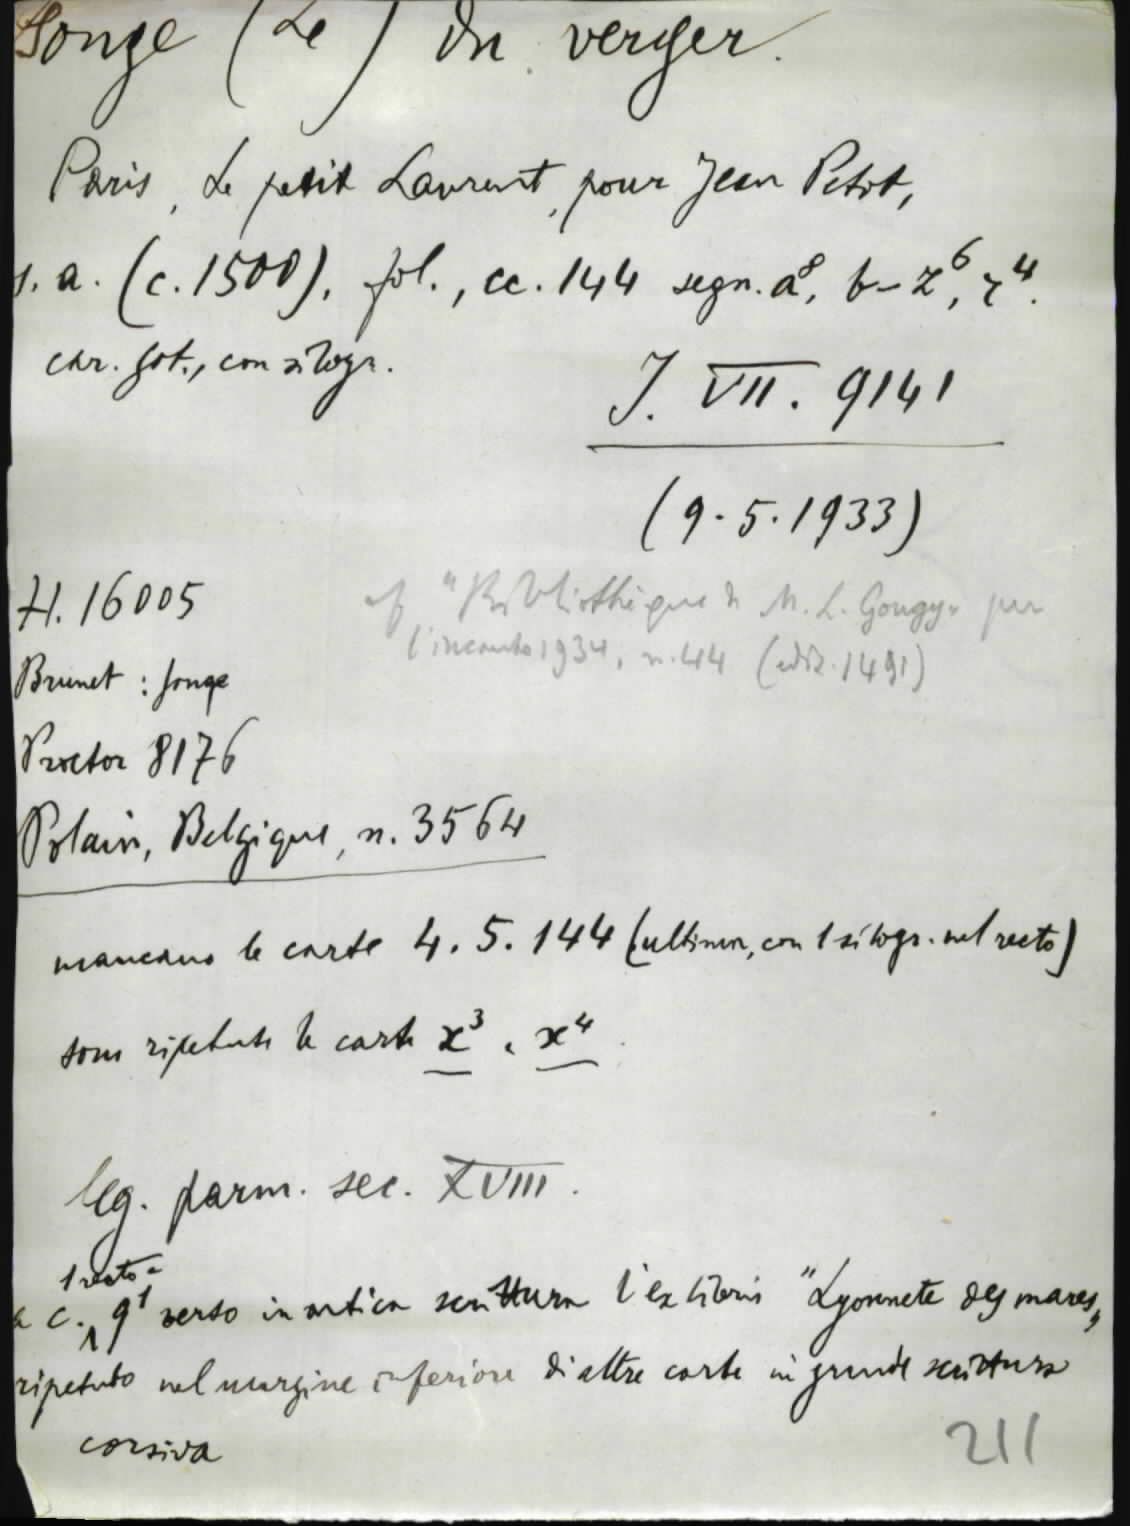 Songe (Le) du verger.
Paris, Le petit Laurent, pour Jean Petit,
s. a. (c. 1500), fol., cc. 144 segn. a⁸, b-z⁶, ⁴.
car. got., con silogr.
J. VII. 9141
(9.5.1933)
H. 16005
cf. "Bibliothèque de M. L. Gougy" par
l'incanto 1934, n. 44 (ediz. 1491)
Brunet : Songe
Proctor 8176
Polain, Belgique, n. 3564
mancano le carte 4. 5. 144 (ultima, con 1 silogr. nel recto)
sono ripetute le carte x³ e x⁴.
leg. perm. sec. XVIII.
1 recto e
a c. q¹ verso in antica scrittura l'ex libris "Lyonnete des mares„
ripetuto nel margine inferiore di altre carte in grande scrittura
corsiva
211